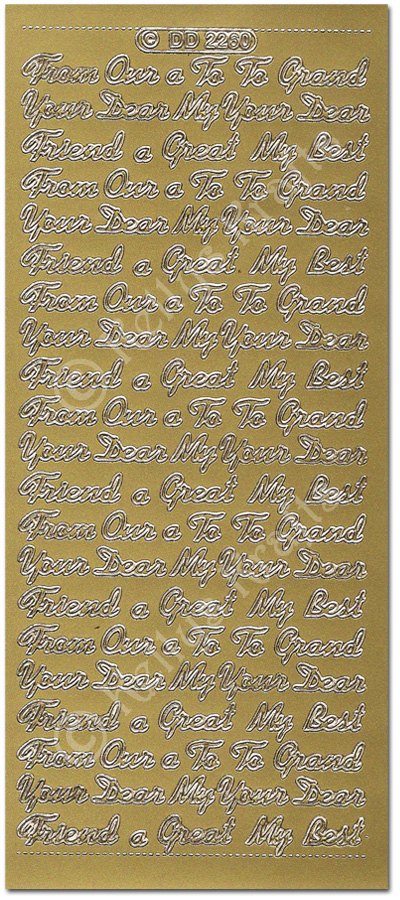 © DD 2260
From Our a To To Grand
Your Dear My Your Dear
Friend a Great My Best
From Our a To To Grand
Your Dear My Your Dear
Friend a Great My Best
From Our a To To Grand
Your Dear My Your Dear
Friend a Great My Best
From Our a To To Grand
Your Dear My Your Dear
Friend a Great My Best
From Our a To To Grand
Your Dear My Your Dear
Friend a Great My Best
From Our a To To Grand
Your Dear My Your Dear
Friend a Great My Best
From Our a To To Grand
Your Dear My Your Dear
Friend a Great My Best